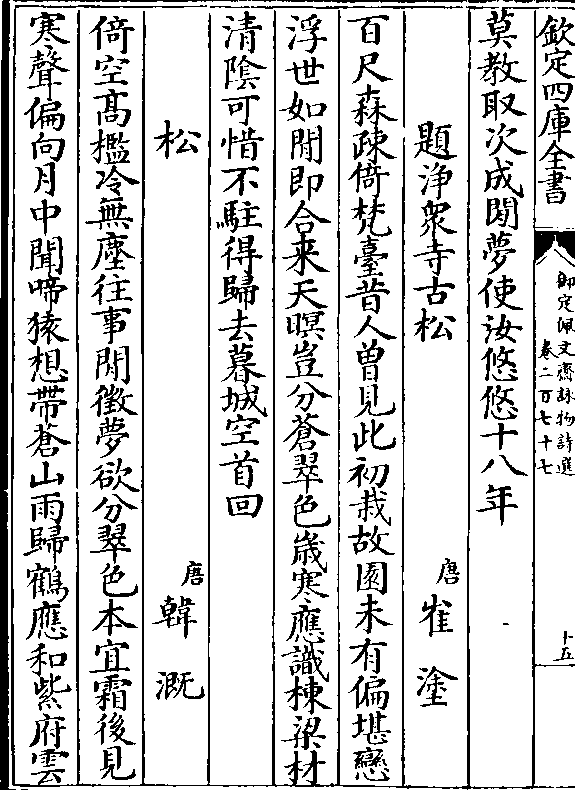 欽定四庫全書
御定佩文齋詠物詩選
卷二百七十七
十五
莫教取次成閑夢使汝悠悠十八年
題浄衆寺古松
唐
崔塗
百尺森疎倚梵臺昔人曽見此初栽故園未有偏堪戀
浮世如閒即合来天暝豈分蒼翠色嵗寒應識棟梁材
清陰可惜不駐得歸去暮城空首回
松
唐
韓溉
倚空髙檻冷無塵往事閒徴夢欲分翠色本宜霜後見
寒聲偏向月中聞啼猿想帶蒼山雨歸鶴應和紫府雲